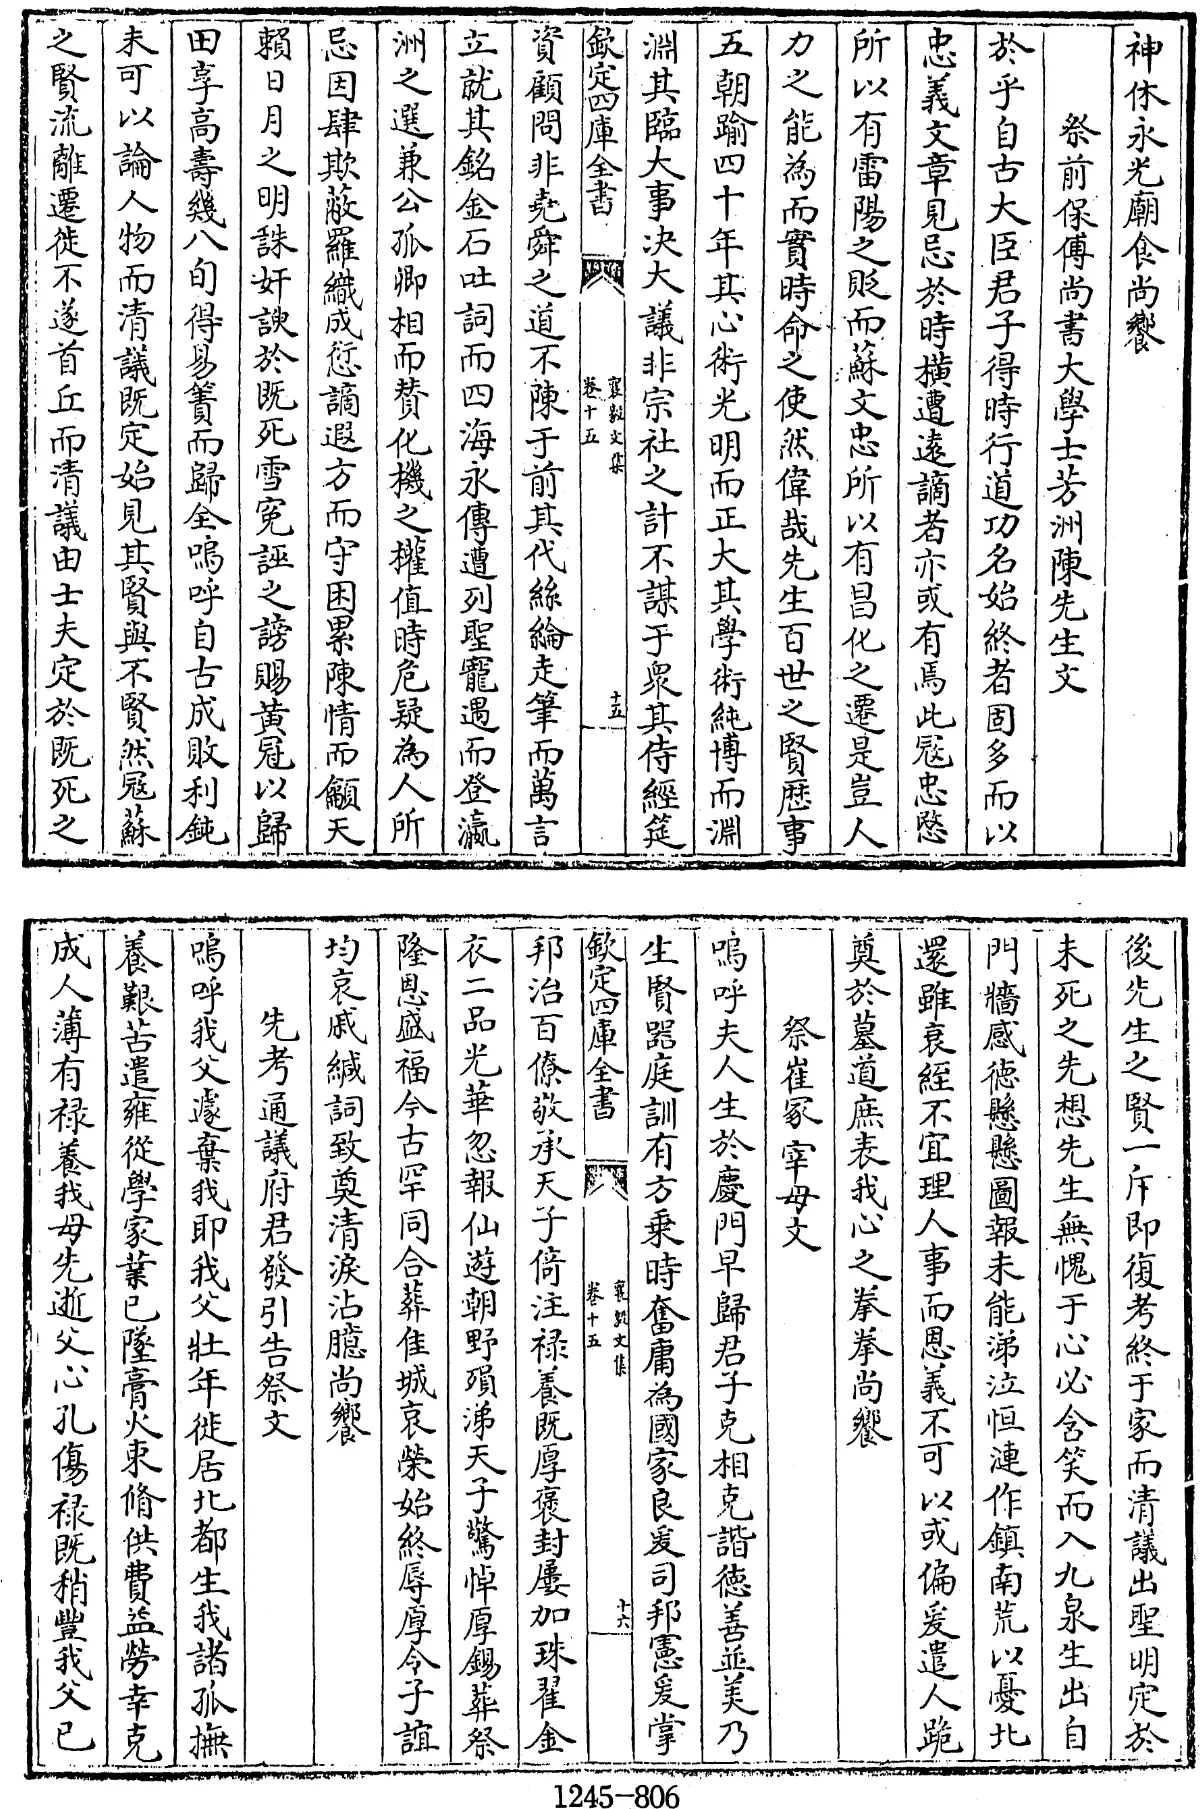 神休永光廟食尚饗
祭前保傅尚書大學士芳洲陳先生文
於乎自古大臣君子得時行道功名始終者固多而以
忠義文章見忌於時橫遭遠謫者亦或有焉此冦忠愍
所以有雷陽之貶而蘇文忠所以有昌化之遷是豈人
力之能為而實時命之使然偉哉先生百世之賢歴事
五朝踰四十年其心術光明而正大其學術純博而淵
淵其臨大事決大議非宗社之計不謀于衆其侍經筵
欽定四庫全書
襄毅文集
卷十五
十五
資顧問非堯舜之道不陳于前其代絲綸走筆而萬言
立就其銘金石吐詞而四海永傳遭列聖寵遇而登瀛
洲之選兼公孤卿相而賛化機之權值時危疑為人所
忌因肆欺蔽羅織成愆謫遐方而守困累陳情而籲天
賴日月之明誅奸諛於既死雪寃誣之謗賜黄冠以歸
田享高壽幾八旬得易簀而歸全嗚呼自古成敗利鈍
未可以論人物而清議既定始見其賢與不賢然冦蘇
之賢流離遷徙不遂首丘而清議由士夫定於既死之
後先生之賢一斥即復考終于家而清議出聖明定於
未死之先想先生無愧于心必含笑而入九泉生出自
門牆感徳懸懸圖報未能涕泣恒漣作鎮南荒以憂北
還雖衰絰不宜理人事而恩義不可以或偏爰遣人跪
奠於墓道庶表我心之拳拳尚饗
祭崔冢宰母文
嗚呼夫人生於慶門早歸君子克相克諧徳善並美乃
生賢器庭訓有方乗時奮庸為國家良爰司邦憲爰掌
欽定四庫全書
襄毅文集
卷十五
十六
邦治百僚敬承天子倚注禄養既厚褒封屢加珠翟金
衣二品光華忽報仙遊朝野殞涕天子驚悼厚錫葬祭
隆恩盛福今古罕同合葬佳城哀榮始終辱厚令子誼
均哀戚緘詞致奠清淚沾臆尚饗
先考通議府君發引告祭文
嗚呼我父遽棄我耶我父壯年徙居北都生我諸孤撫
養艱苦遣雍從學家業已墜膏火束脩供費益勞幸克
成人薄有禄養我母先逝父心孔傷禄既稍豐我父已